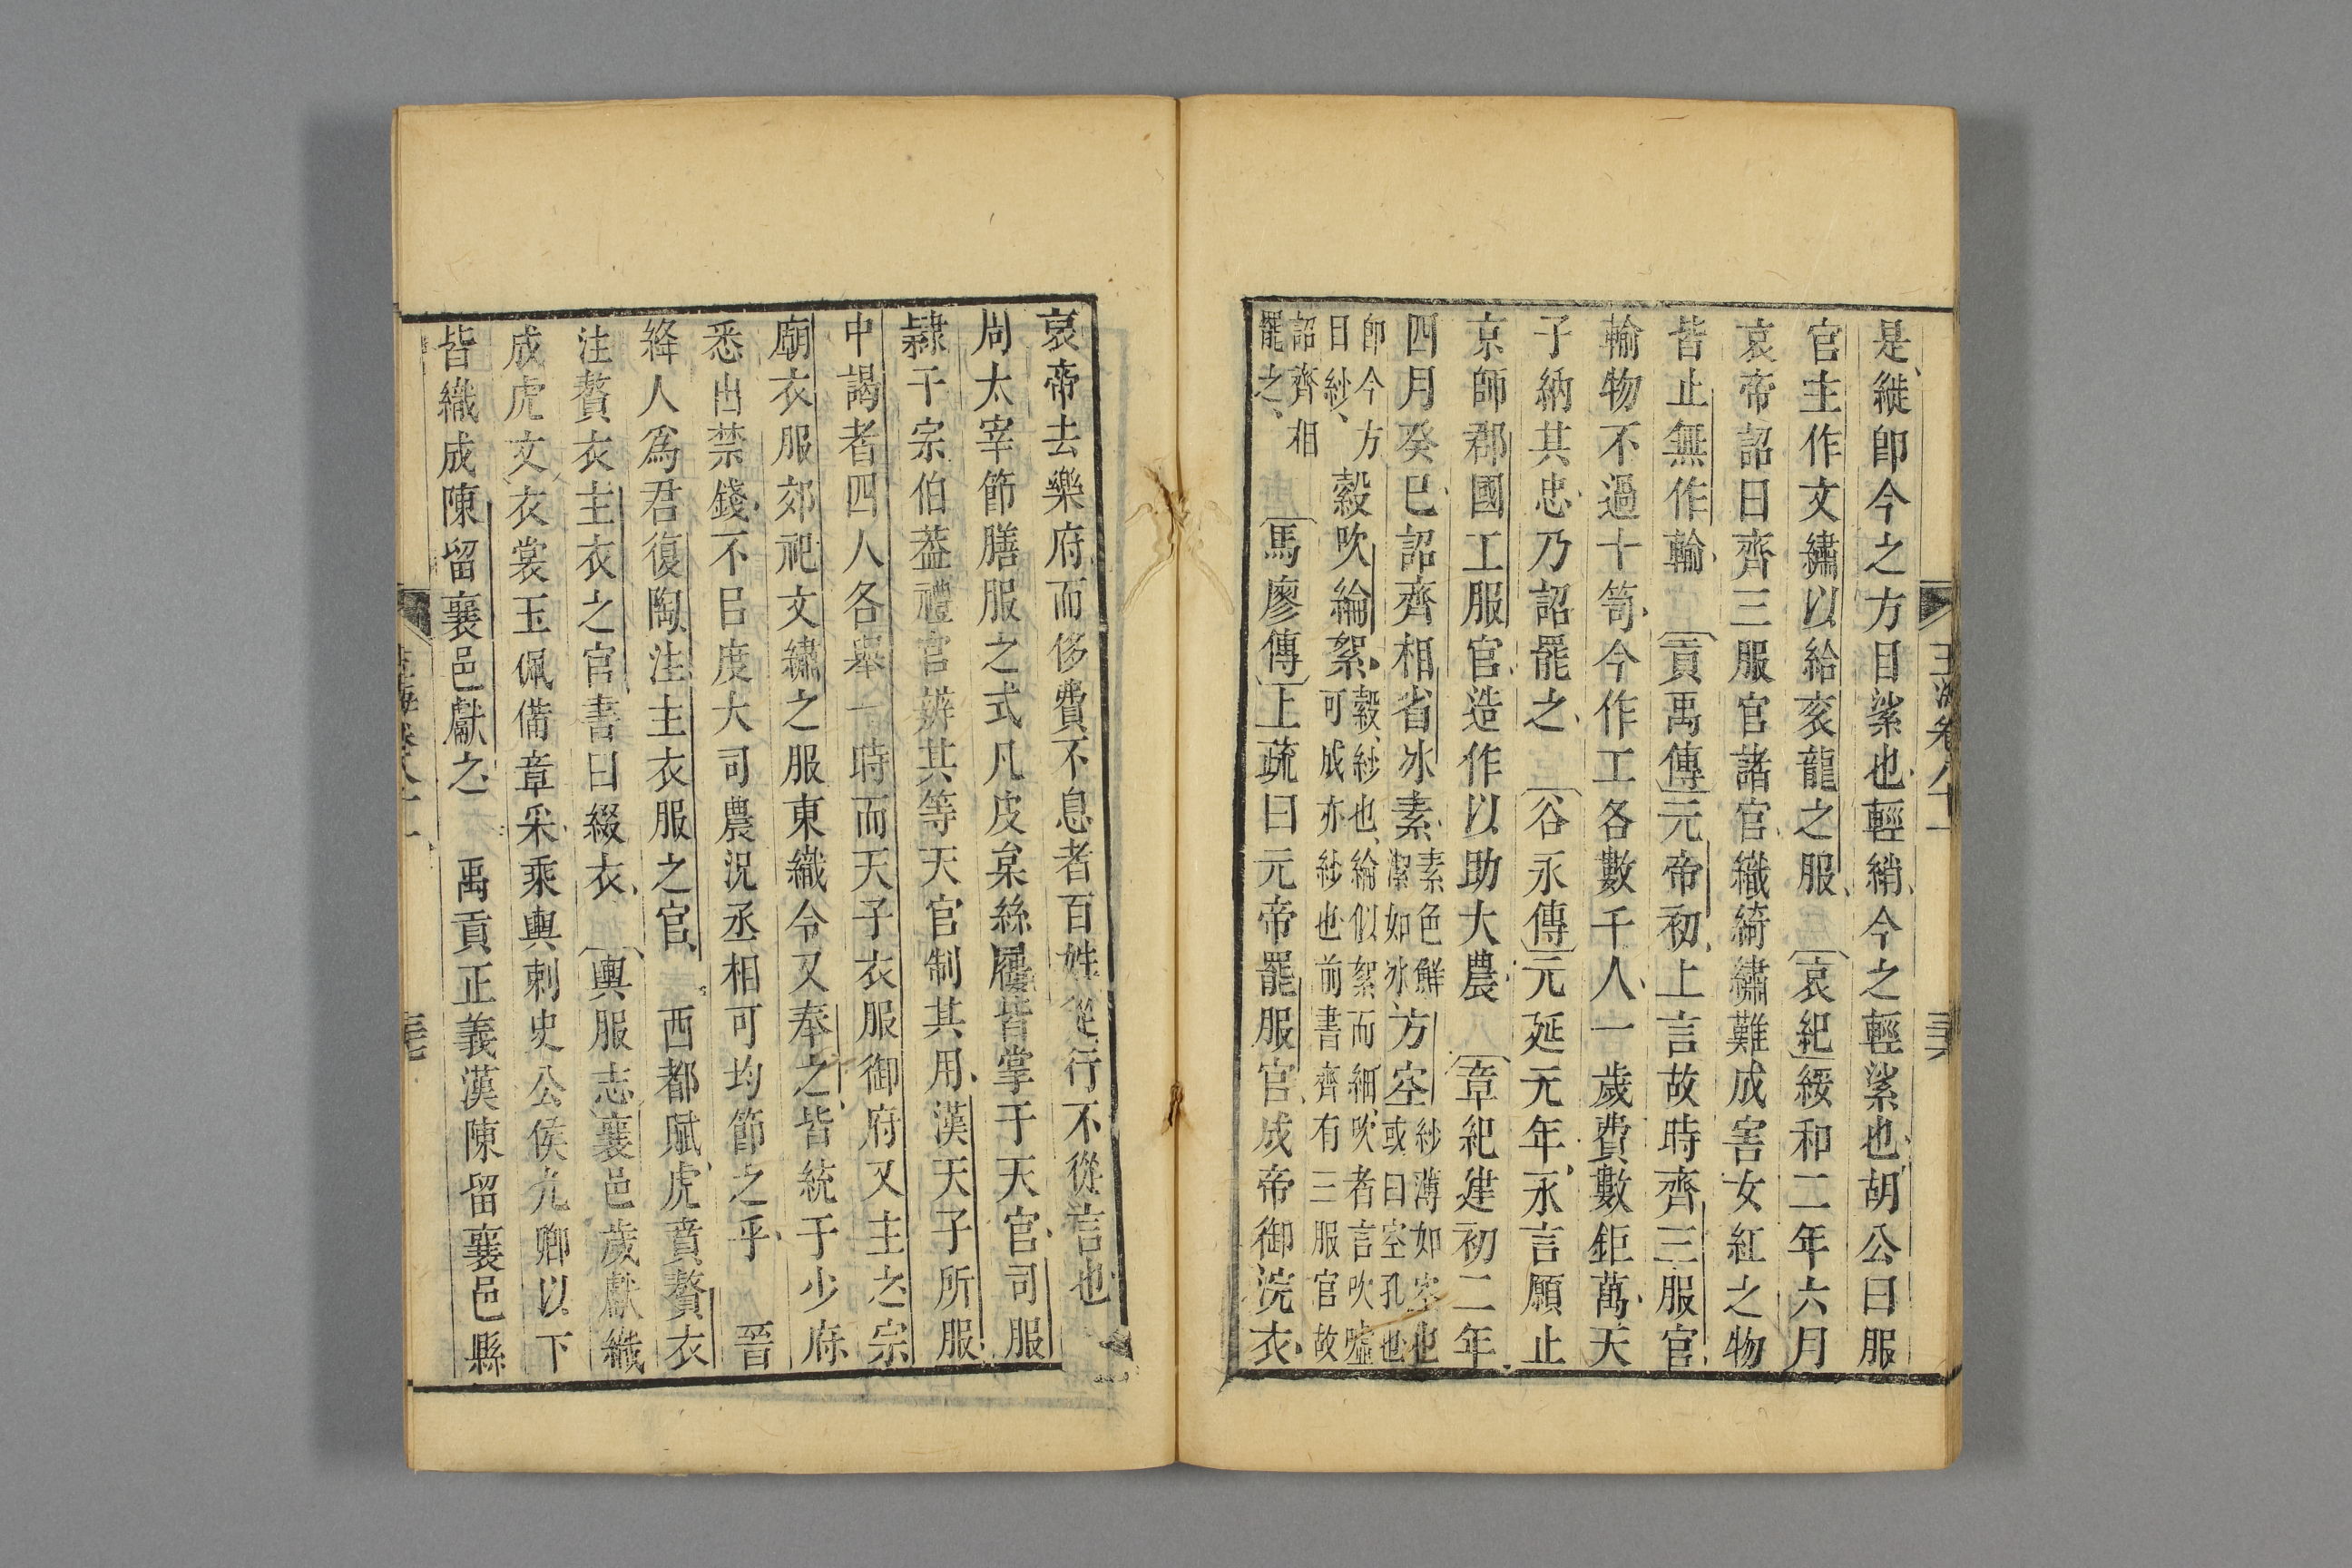 是縰卽今之方目紗也輕綃今之輕紗也胡公曰服
官主作文繡以給袞龍之服　哀紀綏和二年六月
哀帝詔曰齊三服官諸官織綺繡難成害女紅之物
皆止無作輸　貢禹傳元帝初上言故時齊三服官
輸物不過十笥今作工各數千人一歲費數鉅萬天
子納其忠乃詔罷之　谷永傳元延元年永言願止
京師郡國工服官造作以助大農　章紀建初二年
四月癸巳詔齊相省冰素素色鮮潔如冰方空紗薄如空也或曰空孔也
卽今方目紗縠吹綸絮縠紗也綸似絮而細吹者言吹噓可成亦紗也前書齊有三服官故
詔齊相罷之　馬廖傳上疏曰元帝罷服官成帝御浣衣
玉海卷八十一
三六
哀帝去樂府而侈費不息者百姓從行不從言也
周太宰節膳服之式凡皮枲絲屨皆掌于天官司服
隷于宗伯葢禮官辨其等天官制其用漢天子所服
中謁者四人各舉一時而天子衣服御府又主之宗
廟衣服郊祀文繡之服東織令又奉之皆統于少府
悉出禁錢不㠯度大司農況丞相可均節之乎　晉
絳人爲君復陶注主衣服之官　西都賦虎賁贅衣
注贅衣主衣之官書曰綴衣　輿服志襄邑歲獻織
成虎文衣裳玉佩備章采乘輿刺史公侯九卿以下
皆織成陳留襄邑獻之　禹貢正義漢陳留襄邑縣